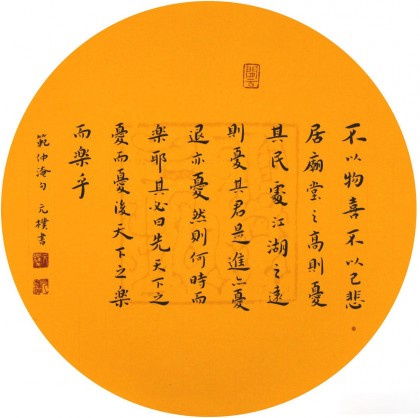 不以物喜不以己悲
居廟堂之高則憂
其民處江湖之遠
則憂其君是進亦憂
退亦憂然則何時而
樂耶其必曰先天下之
憂而憂後天下之樂
而樂乎
範仲淹句 元樸書